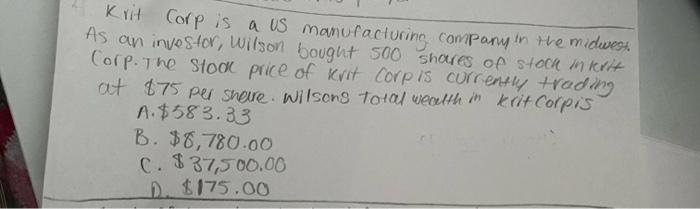 Krit Corp is a US manufacturing company in the midwest.
As an investor, Wilson bought 500 shares of stock in krit
Corp. The stock price of krit Corp is currently trading
at $75 per share. Wilsons total wealth in krit Corp is
A. $583.33
B. $8,780.00
C. $37,500.00
D. $175.00